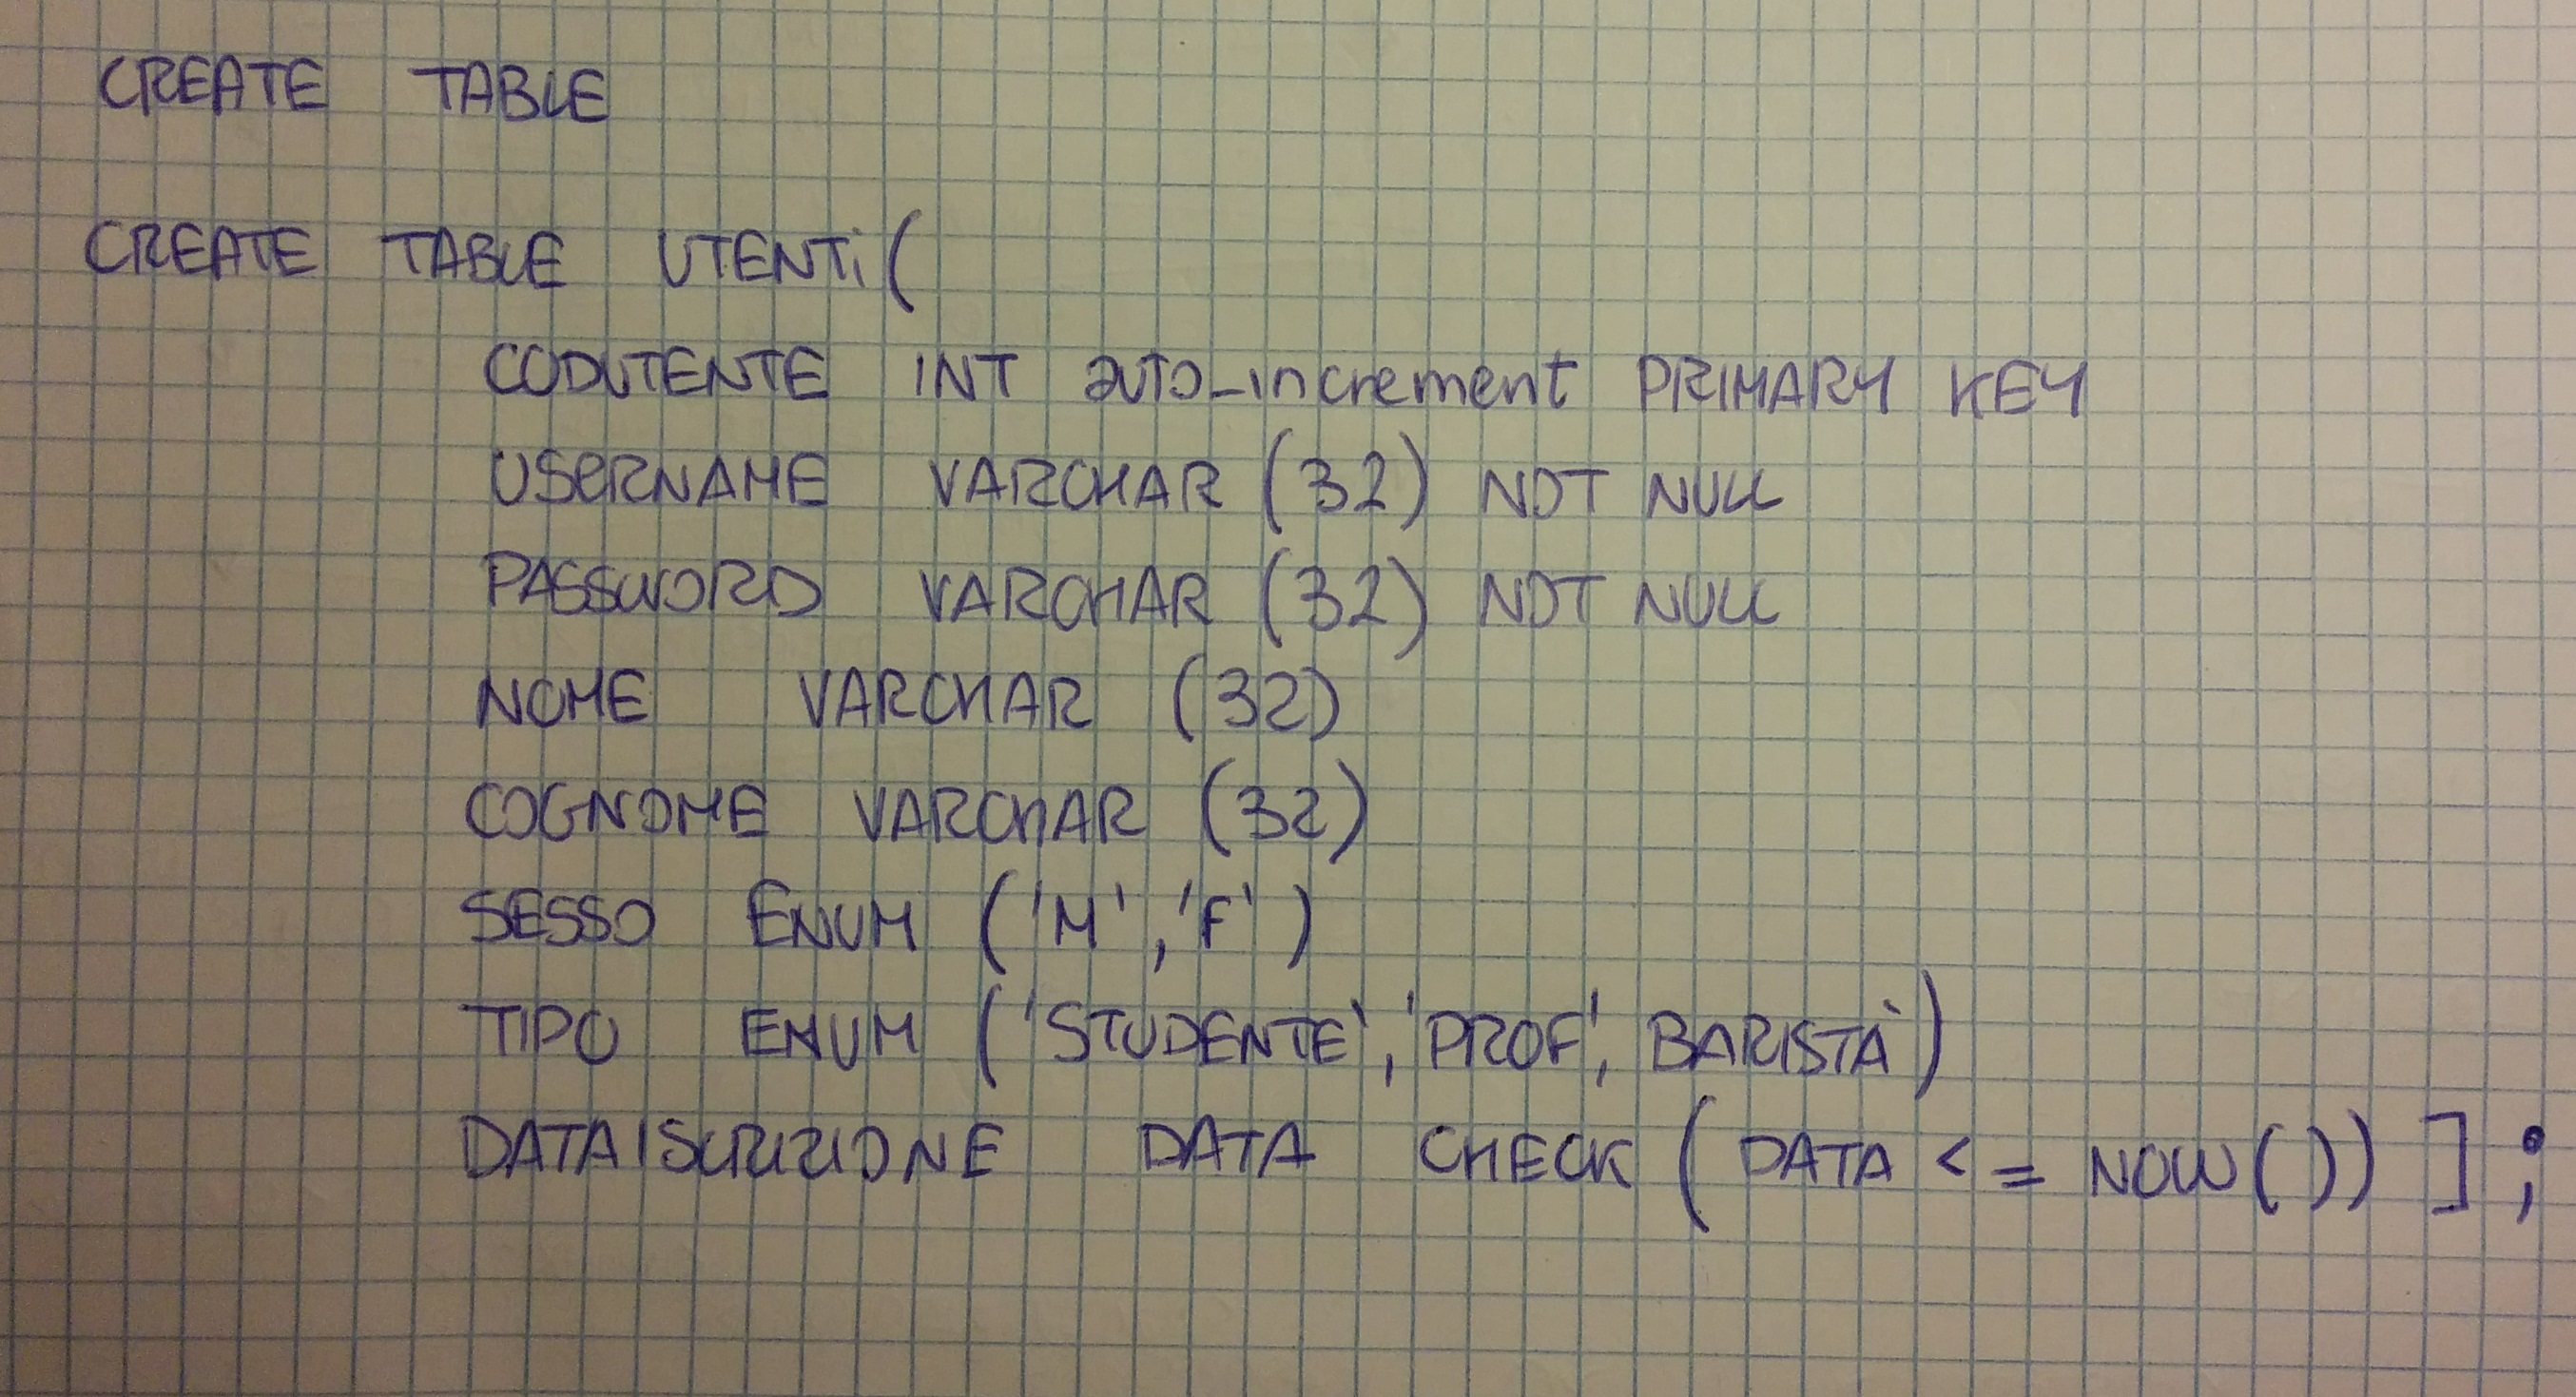 CREATE TABLE
CREATE TABLE UTENTi(
CODUTENTE INT auto_increment PRIMARY KEY
USERNAME VARCHAR (32) NOT NULL
PASSWORD VARCHAR (32) NOT NULL
NOME VARCHAR (32)
COGNOME VARCHAR (32)
SESSO ENUM ('M','F')
TIPO ENUM ('STUDENTE','PROF', BARISTA')
DATAISCRIZIONE DATA CHECK (DATA <= NOW()) ];